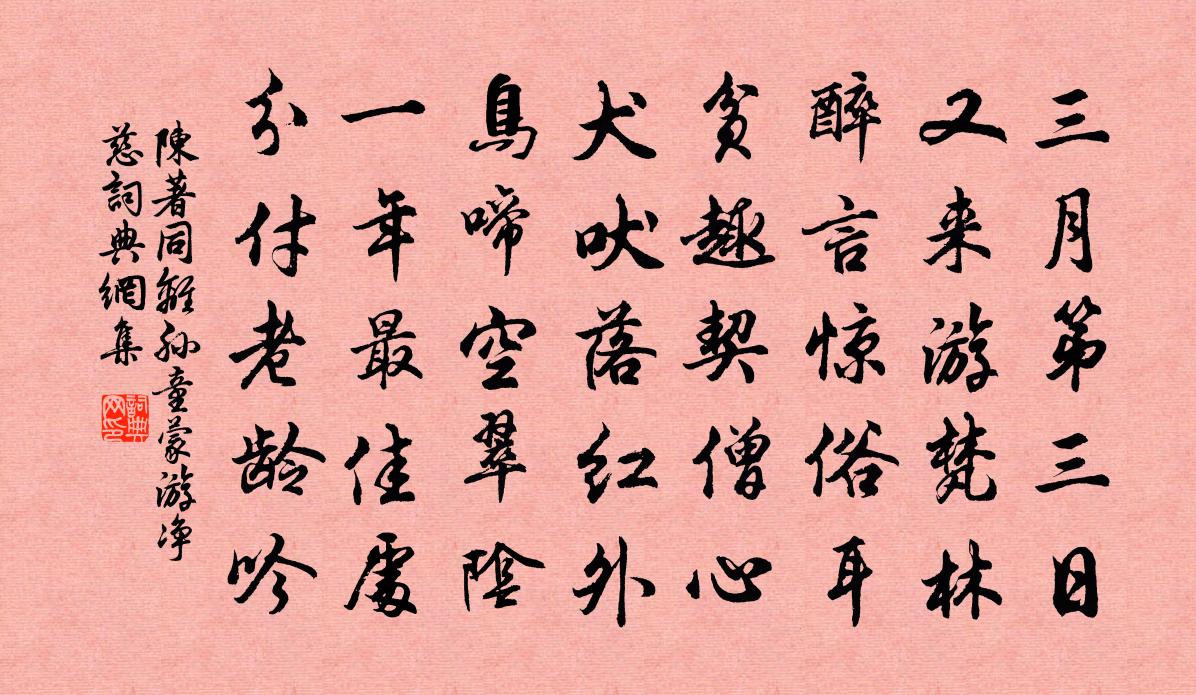 三月第三日
又来游梵林
醉言惊俗耳
贫趣契僧心
犬吠落红外
鳥啼空翠陰
一年最佳處
分付老龄吟
陳著同雞孙童蒙游净
慈詞典網集
詞典网印